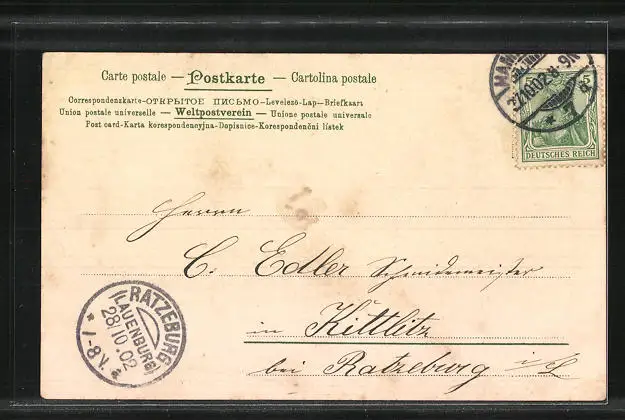 Carte postale — Postkarte — Cartolina postale
Correspondenskarte-ОТКРЫТОЕ ПИСЬМО-Levelező-Lap-Briefkaart
Union postale universelle — Weltpostverein — Unione postale universale
Post card-Karta korespondencyjna-Dopisnice-Korespondenční lístek
27.10.02.8-9N
* 1 d
5
DEUTSCHES REICH
Herrn
C. Edler Schneidemeister
in Kittlitz
bei Ratzeburg i/L
RATZEBURG
(LAUENBURG)
28/10.02
* 1-8V. a